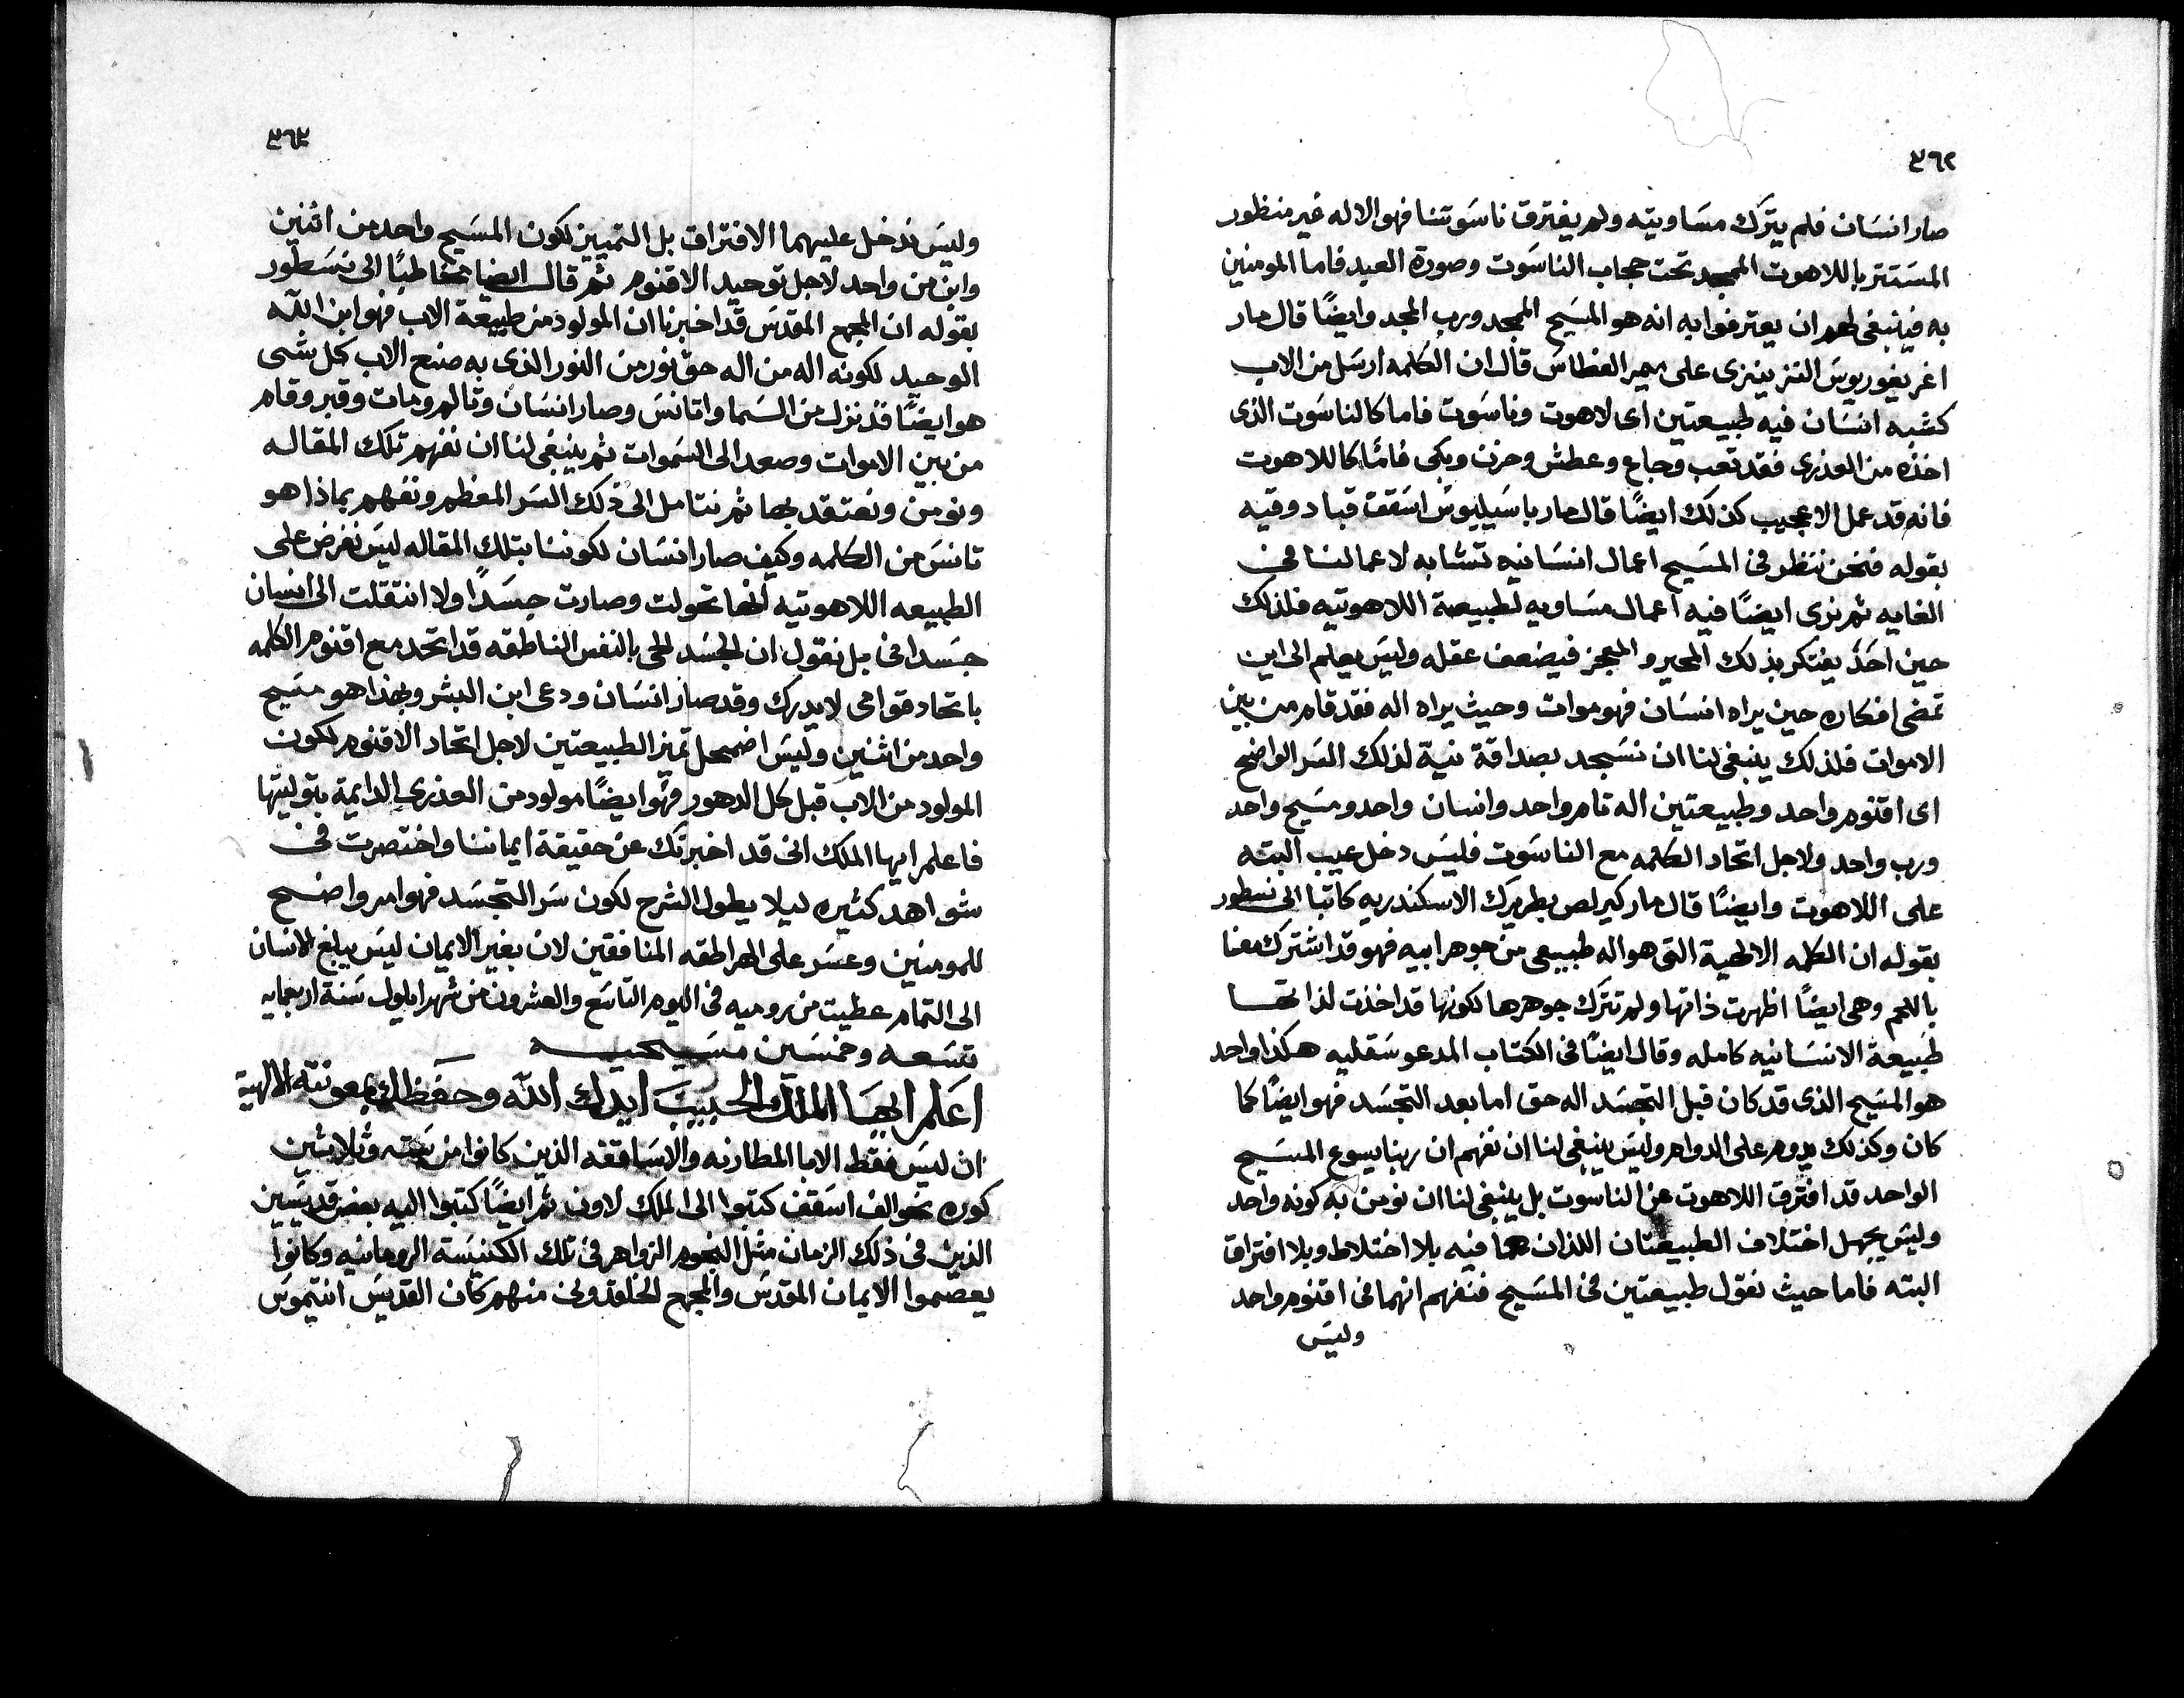 ٣٦٢
صار انسَان فلم يترك مسَاويته ولم يفترق ناسَوتنا فهو الاله غير منظور
المسَتتر باللاهوت الممجد تحت حجاب الناسَوت وصورة العبد فاما المومنين
به فينبغى لهم ان يعترفوا به انه هو المسَيح الممجد ورب المجد وايضًا قال مار
اغريغوريوسَ النزينزى على ميمر الغطاسَ قال ان الكلمه ارسَل من الاب
كشبه انسَان فيه طبيعتين اى لاهوت وناسَوت فاما كالناسَوت الذى
اخذه من العذرى فقد تعب وجاع وعطش وحزن وبكى فامّا كاللاهوت
فانه قد عمل الاعجيب كذلك ايضًا قال مار باسَيليوسَ اسَقف قبادوقيه
بقوله فنحن ننظر فى المسَيح اعمال انسَانيه تشابه لاعمالنا فى
الغايه ثم نرى ايضًا فيه اعمال مسَاويه لطبيعة اللاهوتيه فلذلك
حين احَدٌ يفتكر بذلك المحير والمعجز فيضعف عقله وليسَ يعلم الى اين
تمضى افكاره حين يراه انسَان فهو موات وحيث يراه اله فقد قام من بين
الاموات فلذلك ينبغى لنا ان نسَجد بصداقة نية لذلك السَر الواضح
اى اقنوم واحد وطبيعتين اله تام واحد وانسان واحد ومسَيح واحد
ورب واحد ولاجل اتحاد الكلمه مع الناسَوت فليسَ دخل عيب البته
على اللاهوت وايضًا قال مار كيرلص بطريرك الاسكندريه كاتبا الى نسطور
بقوله ان الكلمه الالهية التى هو اله طبيعى من جوهر ابيه فهو قد اشترك معنا
باللحم وهى ايضًا اظهرت ذاتها ولم تترك جوهرها لكونها قد اخذت لذاتها
طبيعة الانسَانيه كامله وقال ايضًا فى الكتاب المدعو سَقليه هكذا واحد
هو المسَيح الذى قد كان قبل التجسَد اله حق اما بعد التجسَد فهو ايضًا كما
كان وكذلك يدوم على الدوام وليسَ ينبغى لنا ان نفهم ان ربنا يسوع المسَيح
الواحد قد افترق اللاهوت عن الناسوت بل ينبغى لنا ان نومن به كونه واحد
وليسَ يجهل اختلاف الطبيعتان اللذان هما فيه بلا اختلاط وبلا افتراق
البته فاما حيث نقول طبيعتين فى المسَيح فنفهم انهما فى اقنوم واحد
وليسَ
٣٦٣
وليسَ ندخل عليهما الافتراق بل التمييز لكون المسَيح واحد من اثنين
وابن من واحد لاجل توحيد الاقنوم ثم قال ايضا مخاطبًا الى نسَطور
بقوله ان المجمع المقدسَ قد اخبرنا ان المولود من طبيعة الاب فهو ابن الله
الوحيد لكونه اله من اله حق نور من النور الذى به صنع الاب كل شى
هو ايضًا قد نزل من السَما واتانسَ وصار انسَان وتالم ومات وقبر وقام
من بين الاموات وصعد الى السَموات ثم ينبغى لنا ان نفهم تلك المقاله
ونومن ونعتقد بها ثم نتامل الى ذلك السَر المعظم ونفهم بماذا هو
تانسَ من الكلمه وكيف صار انسَان لكوننا بتلك المقاله ليسَ نفرض على
الطبيعه اللاهوتيه انها تحولت وصارت جسَدًا ولا انتقلت الى انسان
جسَدانى بل نقول ان الجسَد الحى بالنفس الناطقه قد اتحد مع اقنوم الكلمه
باتحاد قوامى لا يدرك وقد صار انسَان ودعى ابن البشر وبهذا هو مسَيح
واحد من اثنين وليسَ اضمحل تميز الطبيعتين لاجل اتحاد الاقنوم لكون
المولود من الاب قبل كل الدهور فهو ايضًا مولود من العذرى الدايمة بتوليتها
فاعلم ايها الملك انى قد اخبرتك عن حقيقة ايماننا واختصرت فى
شواهد كثيره ليلا يطول الشرح لكون سَر التجسَد فهو امر واضح
للمومنين وعسَر على الهراطقه المنافقين لان بغير الايمان ليسَ يبلغ الانسان
الى التمام عطيت من روميه فى اليوم التاسَع والعشرون من شهر ايلول سَنة اربعمايه
تسَعه وخمسَين مسَيحيه
اعَلم ايهَا الملك الحبيبَ ايدك الله وحفظك بمعونته الالهية
ان ليسَ فقط الابا المطارنه والاسَاقفه الذين كانوا من سَته وثلاثين
كوره نحو الف اسَقف كتبوا الى الملك لاون ثم ايضًا كتبوا اليه بعض قديسَين
الذين فى ذلك الزمان مثل النجوم الزواهر فى تلك الكنيسَة الروحانيه وكانوا
يعصموا الايمان المقدسَ والمجمع الخلقدونى منهم كان القديسَ انتيموسَ